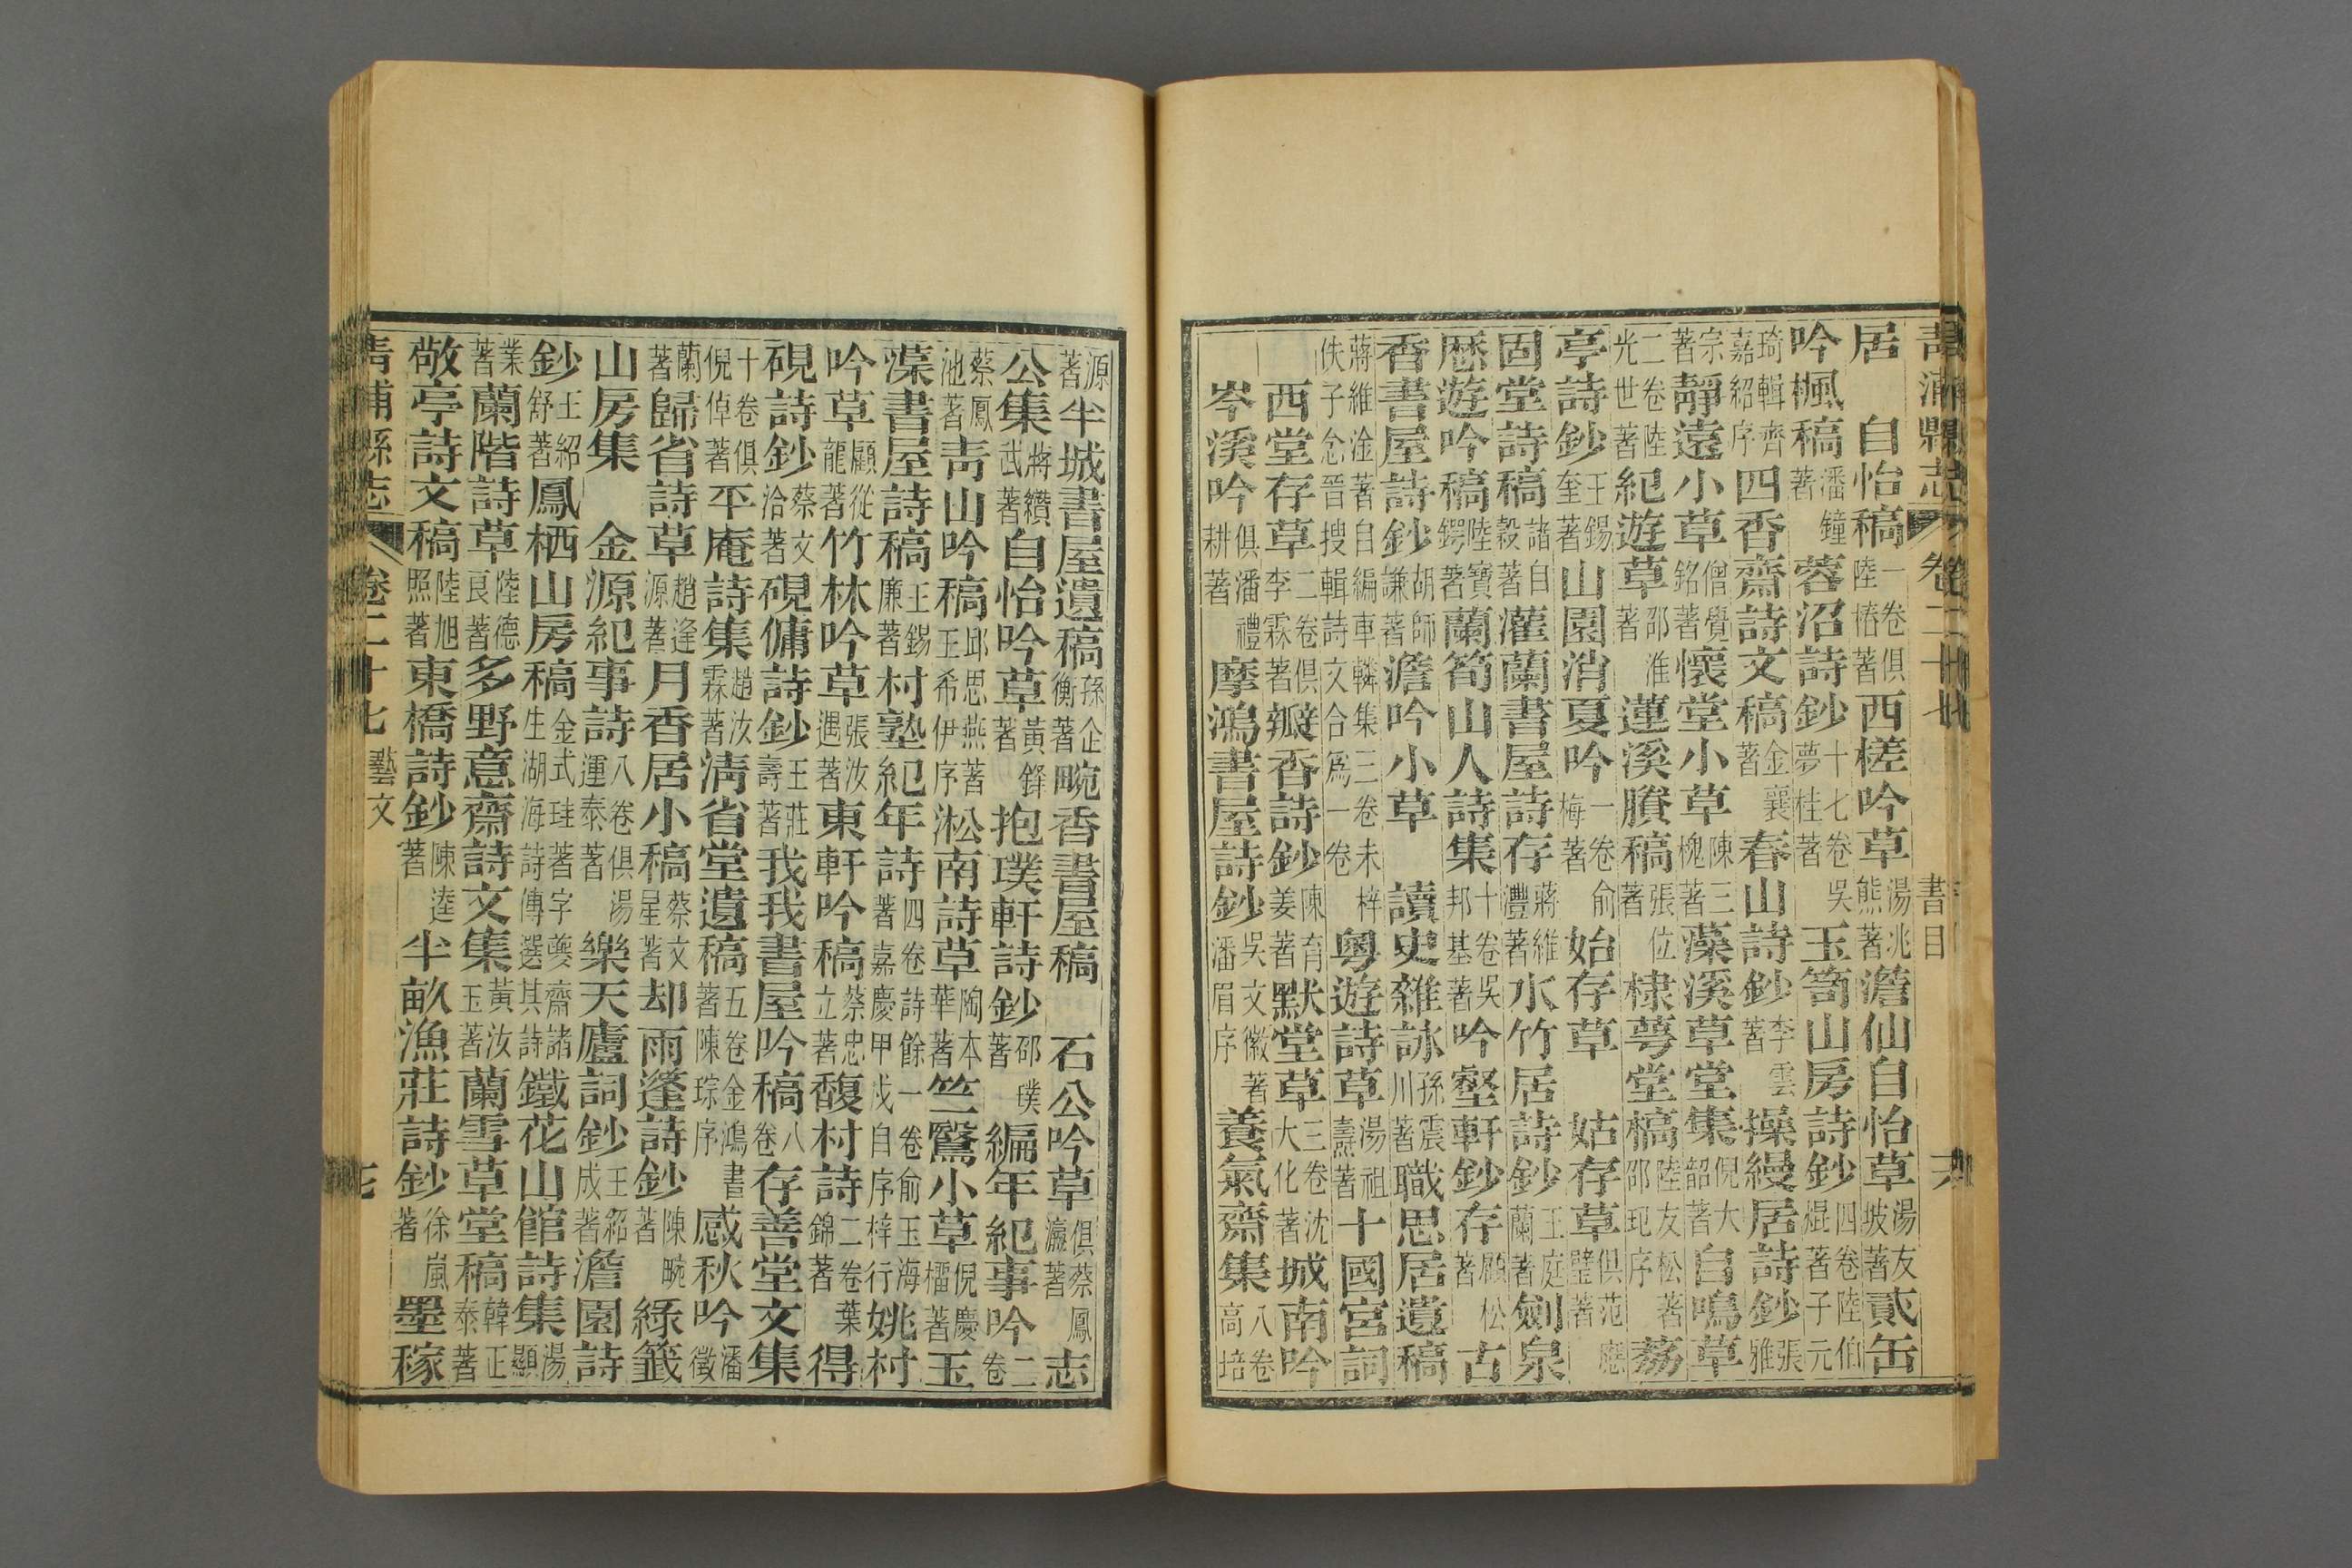 青浦縣志 卷二十七 書目
居 自怡稿 一卷俱陸椿著 西槎吟草 湯洮熊著 澹仙自怡草 湯友坡著 貳缶
吟楓稿 潘鐘著 蓉沼詩鈔 十七卷吳夢桂著 玉笥山房詩鈔 四卷陸伯焜著子元
琦輯齊嘉紹序 四香齋詩文稿 金襄著 春山詩鈔 李雲著 操縵居詩鈔 張雅
宗著 靜遠小草 僧覺銘著 懷堂小草 陳三槐著 藻溪草堂集 倪大韶著 自鳴草
二卷陸光世著 紀遊草 邵淮著 蓮溪賸稿 張位著 棣萼堂稿 陸友松著邵玘序 荔
亭詩鈔 王錫奎著 山園消夏吟 一卷俞梅著 始存草 姑存草 俱范應璧著
固堂詩稿 諸自穀著 灌蘭書屋詩存 蔣維灃著 水竹居詩鈔 王庭蘭著 劍泉
歷遊吟稿 陸寶鍔著 蘭筍山人詩集 十卷吳邦基著 吟壑軒鈔存 顧松著 古
香書屋詩鈔 胡師謙著 澹吟小草 讀史雜詠 孫震川著 職思居遺稿
蔣維淦著自編車轔集三卷未梓佚子念晉搜輯詩文合爲一卷 粵遊詩草 湯祖燾著 十國宮詞
西堂存草 二卷俱李霖著 瓣香詩鈔 陳育姜著 默堂草 三卷沈大化著 城南吟
岑溪吟 俱潘禮耕著 摩鴻書屋詩鈔 吳文徽著潘眉序 養氣齋集 八卷高培
源著 半城書屋遺稿 孫企衡著 畹香書屋稿 石公吟草 俱蔡鳳瀛著 志
公集 蔣纘武著 自怡吟草 黃鋒著 抱璞軒詩鈔 邵璞著 編年紀事吟 二卷
蔡鳳池著 靑山吟稿 邱思燕著王希伊序 淞南詩草 陶本華著 竺鷖小草 倪慶橊著 玉
藻書屋詩稿 王錫廉著 村塾紀年詩 四卷詩餘一卷俞玉海著嘉慶甲戌自序梓行 姚村
吟草 顧從龍著 竹林吟草 張汝遇著 東軒吟稿 蔡忠立著 馥村詩 二卷葉錦著 得
硯詩鈔 蔡文洽著 硯傭詩鈔 王莊壽著 我我書屋吟稿 八卷 存善堂文集
十卷俱倪倬著 平庵詩集 趙汝霖著 淸省堂遺稿 五卷金鴻書著陳琮序 感秋吟 潘徵
蘭著 歸省詩草 趙逢源著 月香居小稿 蔡文星著 却雨蓬詩鈔 陳畹著 綠籤
山房集 金源紀事詩 八卷俱湯運泰著 樂天廬詞鈔 王紹成著 澹園詩
鈔 王紹舒著 鳳栖山房稿 金式珪著字夔齋諸生湖海詩傳選其詩 鐵花山館詩集 湯顯
業著 蘭階詩草 陸德良著 多野意齋詩文集 黃汝玉著 蘭雪草堂稿 韓正泰著
敬亭詩文稿 陸旭照著 東橋詩鈔 陳逵著 半畝漁莊詩鈔 徐嵐著 墨稼
青浦縣志 卷二十七 藝文